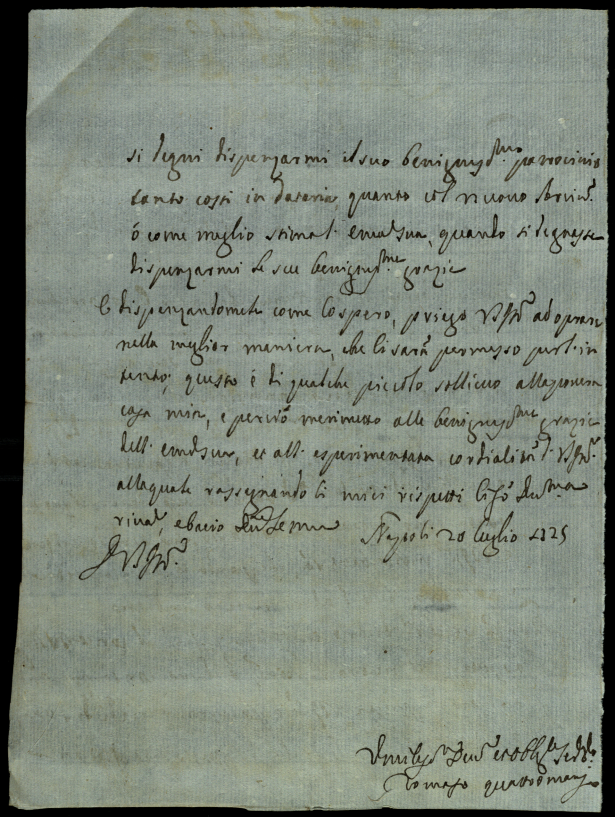 si degni dispenzarmi il suo benigniss.mo patrocinio
tanto costì in Dataria, quanto col nuovo
ò come meglio stimarà em.za sua, quando si degnasse
dispenzarmi le sue benigniss.me grazie
E dispenzandomele come lo spero, priego V.S. Ill.ma adoprare
nella miglior maniera, che li sarà permesso per l'in
tento; questo è di qualche piccolo sollievo alla povera
casa mia, e perciò mi rimetto alle benigniss.me grazie
dell' em.za sua, et all' esperimentata cordialità di V.S. Ill.ma
alla quale rassegnando li miei rispetti li fò
e bacio le mani Napoli 20 luglio 1725
Di V.S. Ill.ma
Tomaso Quattromani